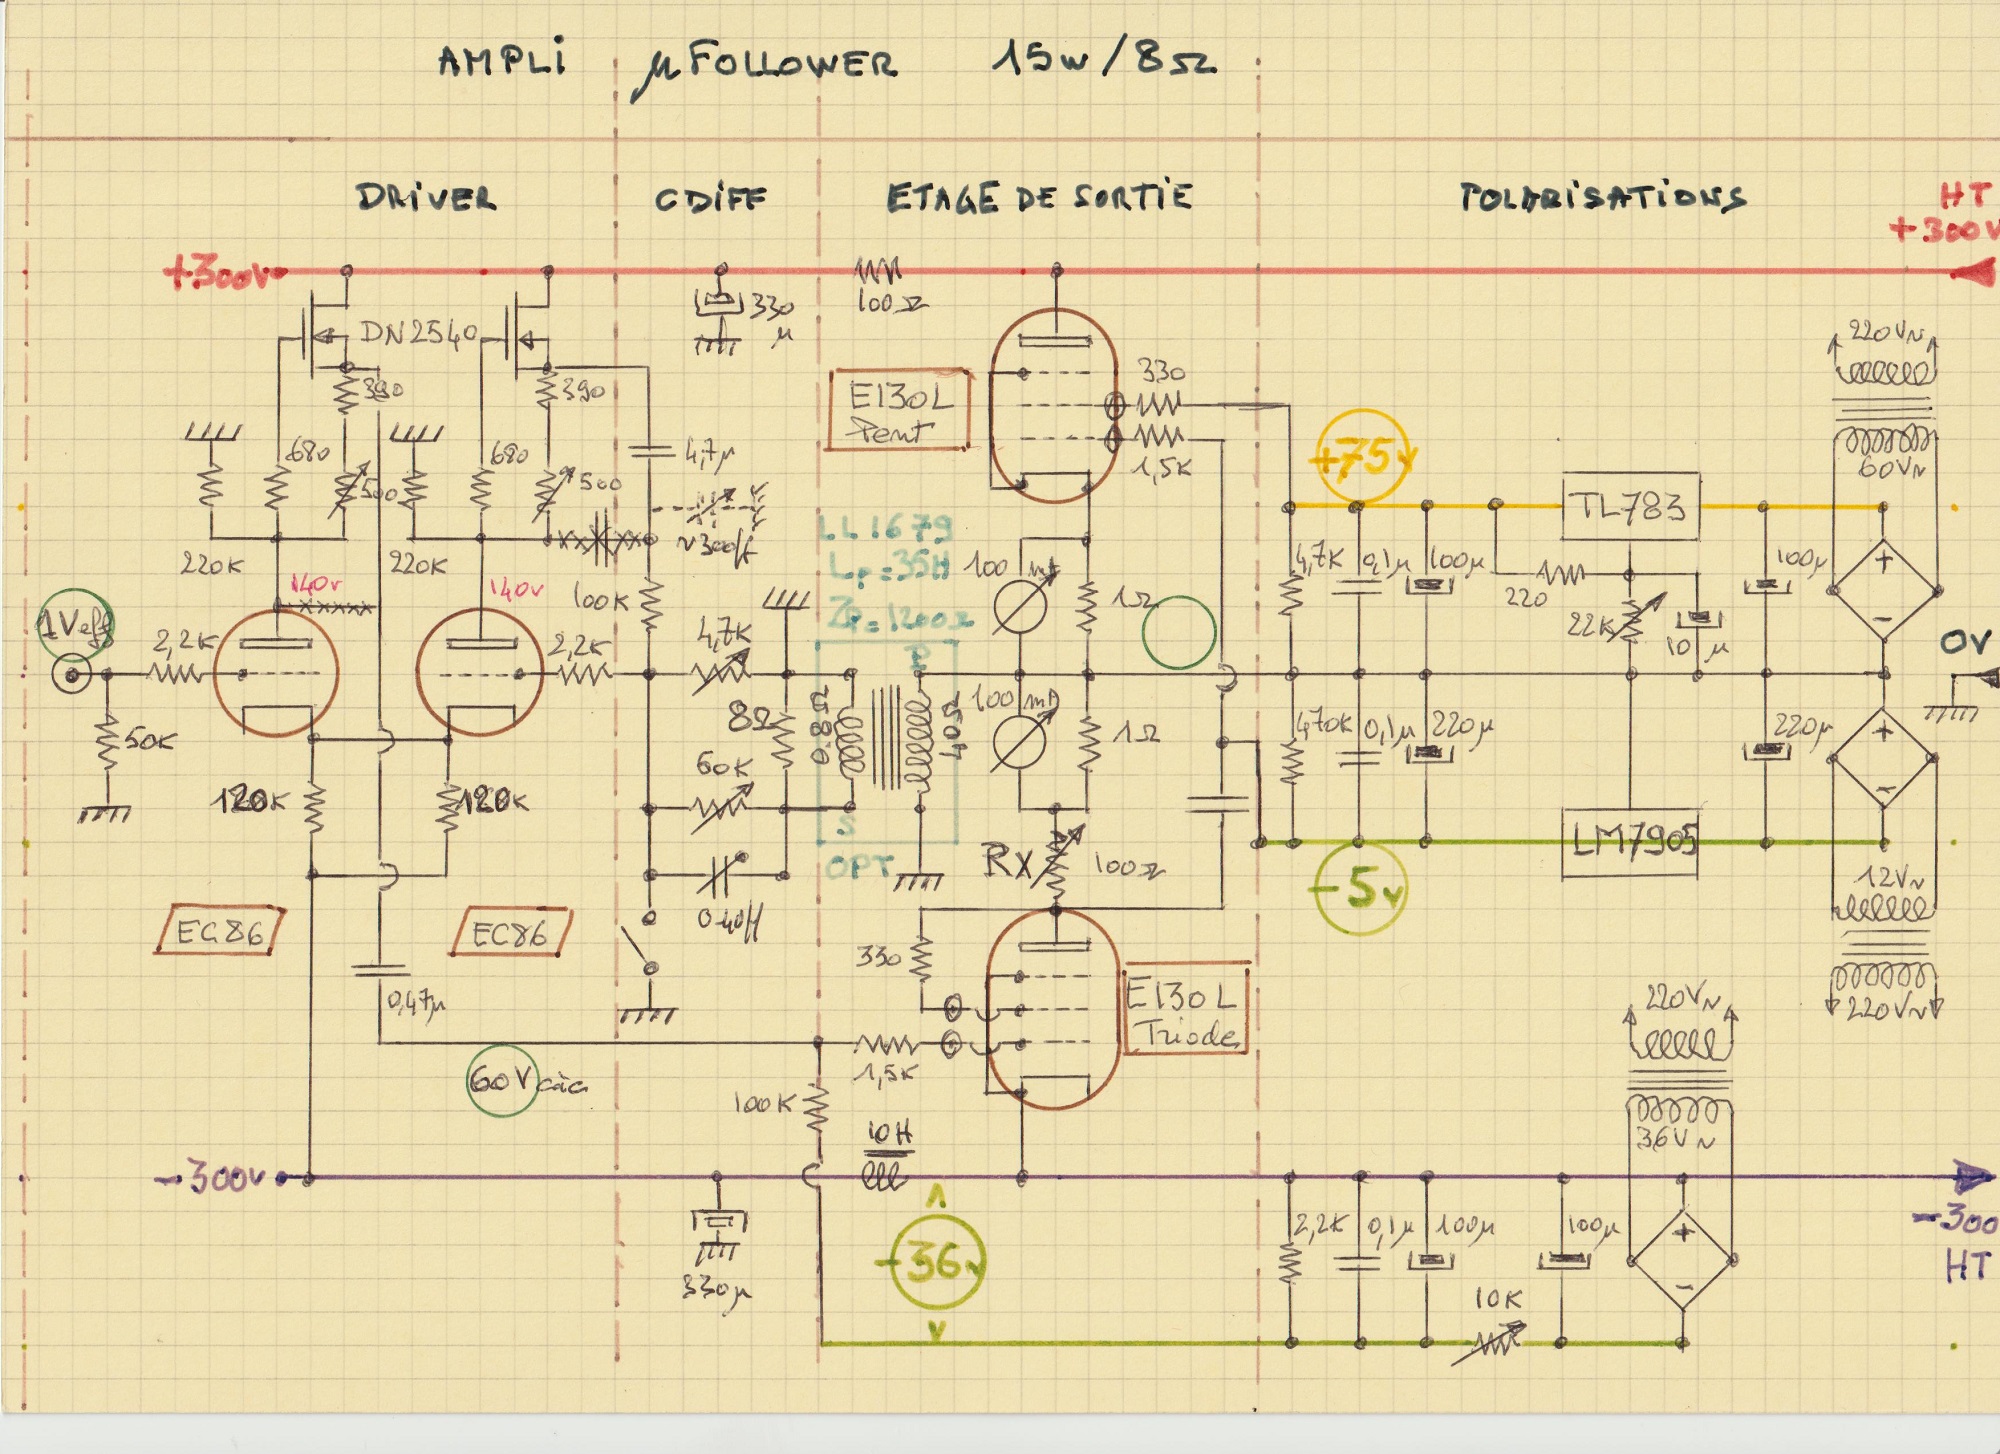 AMPLi µFOLLOWER 15w/8Ω
DRIVER
CDIFF
ETAGE DE SORTIE
POLARISATIONS
HT
+300V
+300V
DN2540
390
390
680
680
500
500
220K
220K
140v
140v
1Veff
2,2K
2,2K
50K
120K
120K
EC86
EC86
0,47µ
60V càc
-300v
330
µ
4,7µ
100K
4,7K
8Ω
60K
330µ
100Ω
E130L
Pent
330
1,5K
LL1679
Lp=35H
Zp=1200Ω
P
S
OPT
0.88Ω
40Ω
100 mA
1Ω
100 mA
1Ω
Rx
100Ω
330
E130L
Triode
1,5K
100K
10H
-36v
+75v
TL783
4,7K
0,1µ
100µ
220
22K
10µ
100µ
220V~
60V~
0V
470K
0,1µ
220µ
220µ
-5v
LM7905
12V~
220V~
220V~
36V~
2,2K
0,1µ
100µ
100µ
10K
-300
HT